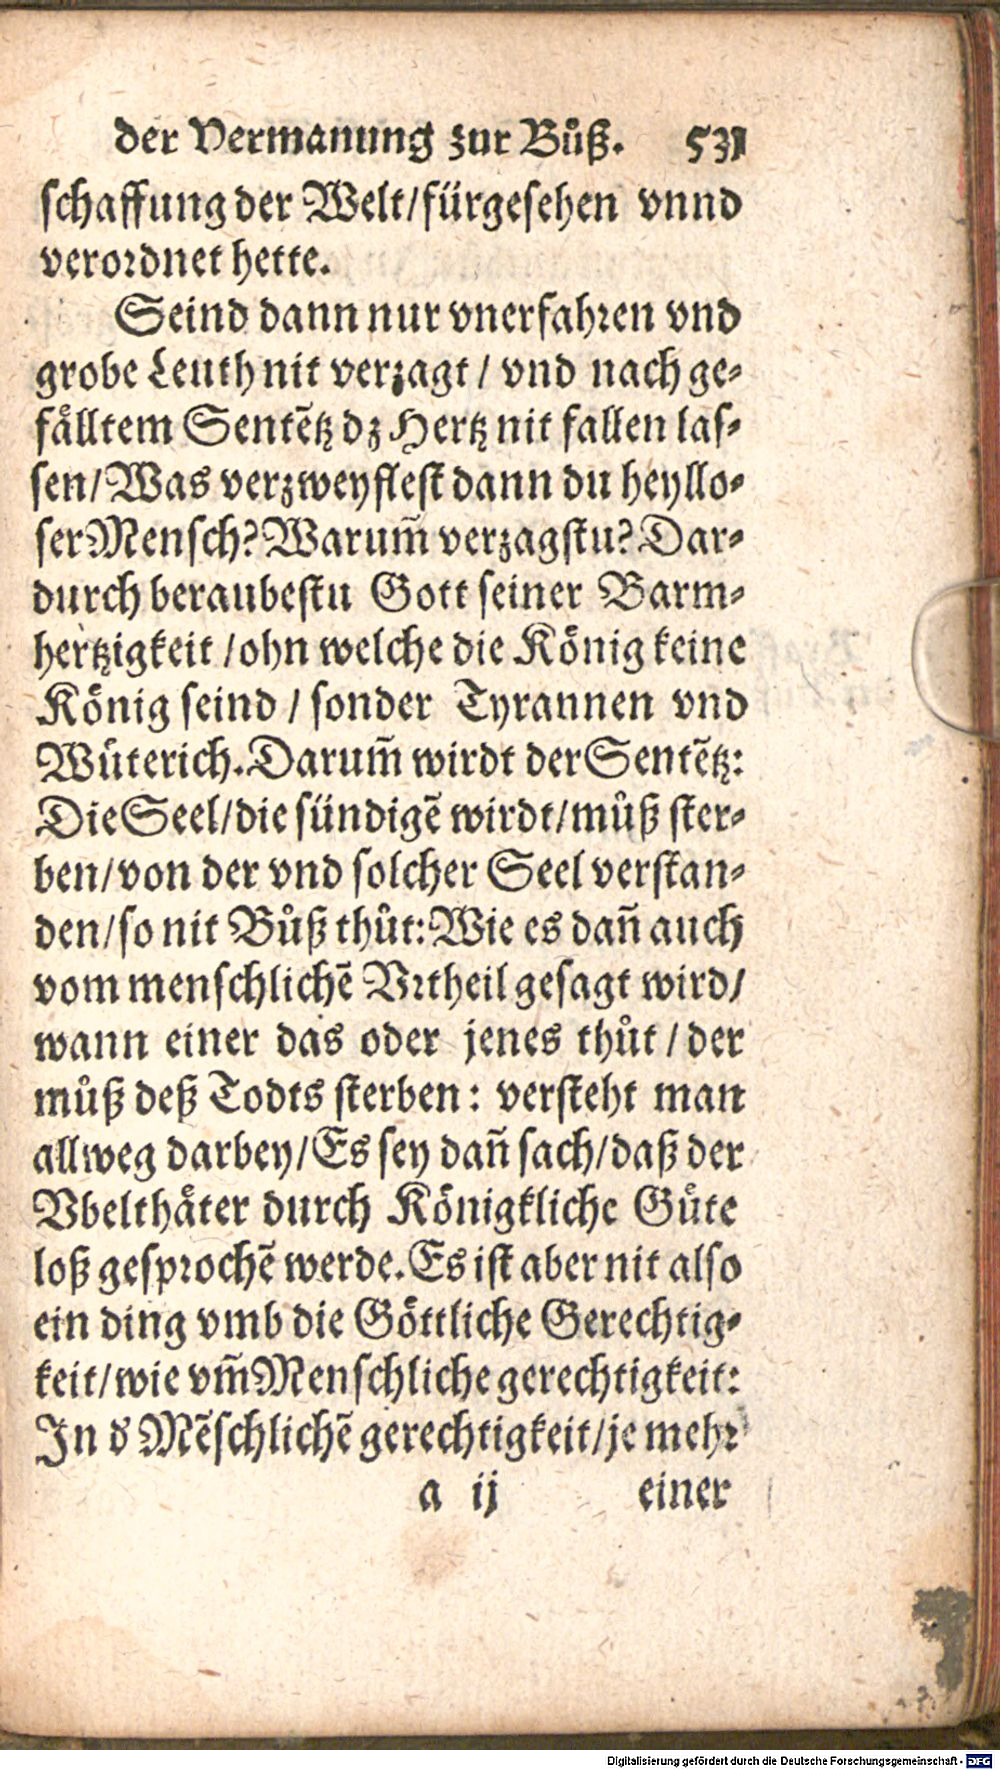 der Vermanung zur Bůß. 531
schaffung der Welt/fürgesehen vnnd
verordnet hette.
Seind dann nur vnerfahren vnd
grobe Leuth nit verzagt / vnd nach ge-
fålltem Sentẽtz dz Hertz nit fallen las-
sen/Was verzweyflest dann du heyllo-
ser Mensch? Warum̃ verzagstu? Dar-
durch beraubestu Gott seiner Barm-
hertzigkeit /ohn welche die König keine
König seind / sonder Tyrannen vnd
Wüterich. Darum̃ wirdt der Sentẽtz:
Die Seel/die sündigẽ wirdt/můß ster-
ben/von der vnd solcher Seel verstan-
den/so nit Bůß thůt: Wie es dañ auch
vom menschlichẽ Vrtheil gesagt wird/
wann einer das oder jenes thůt / der
můß deß Todts sterben: versteht man
allweg darbey/Es sey dañ sach/daß der
Vbelthäter durch Königkliche Güte
loß gesprochẽ werde. Es ist aber nit also
ein ding vmb die Göttliche Gerechtig-
keit/wie vm̃ Menschliche gerechtigkeit:
In d' Mẽschlichẽ gerechtigkeit/je mehr
a ij einer
Digitalisierung gefördert durch die Deutsche Forschungsgemeinschaft - DFG